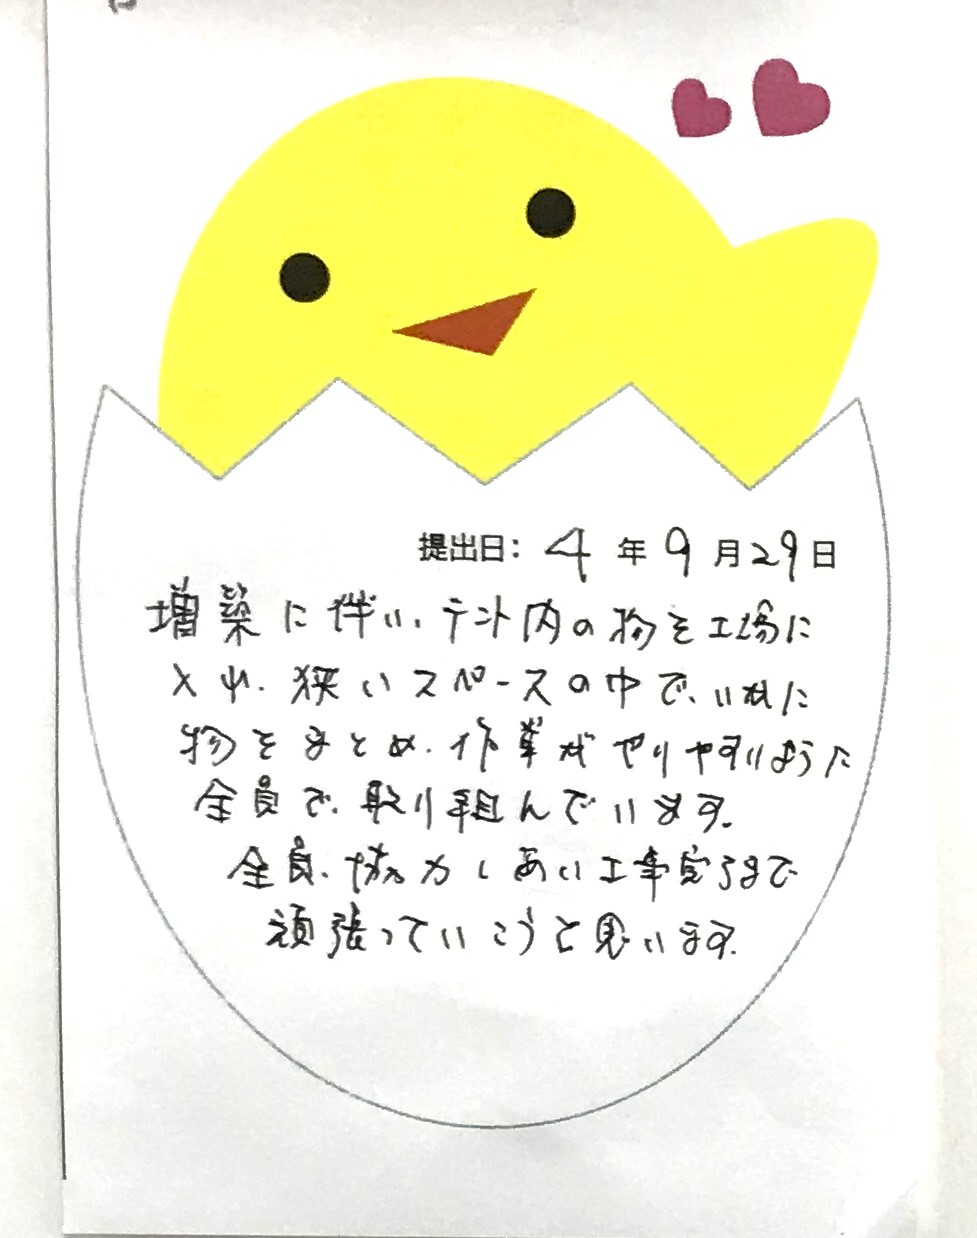 提出日: 4 年 9 月 29 日
増築に伴い、テント内の物を工場に
入れ、狭いスペースの中で、いかに
物をまとめ、作業がやりやすいように
全員で、取り組んでいます。
全員、協力しあい工事完了まで
頑張っていこうと思います。